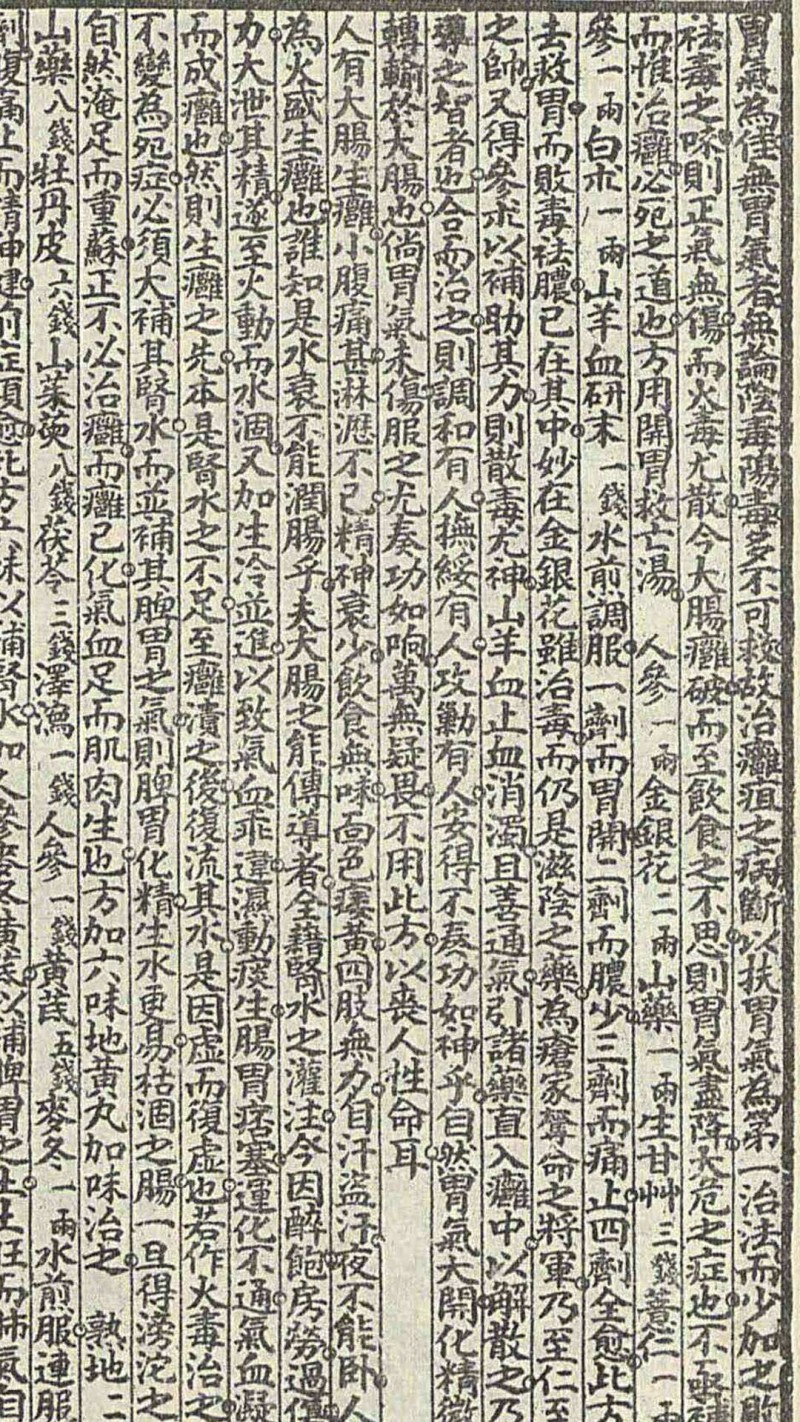 胃氣為佳無胃氣者無論陰毒陽毒多不可救故治癰疽之病斷以扶胃氣為第一治法而少加之敗
祛毒之味則正氣無傷而火毒尤散今大腸癰破而至飲食之不思則胃氣盡降大危之症也不亟
而惟治癰必死之道也方用開胃救亡湯　人參一兩金銀花二兩山藥一兩生甘艸三錢薏仁一
參一兩白朮一兩山羊血研末一錢水煎調服一劑而胃開二劑而膿少三劑而痛止四劑全愈此方
去救胃而敗毒祛膿已在其中妙在金銀花雖治毒而仍是滋陰之藥為瘡家奪命之將軍乃至仁至
之帥又得參朮以補助其力則散毒尤神山羊血止血消濁且善通氣引諸藥直入癰中以解散之乃
導之智者也合而治之則調和有人撫綏有人攻勦有人安得不奏功如神乎自然胃氣大開化精微
轉輸於大腸也倘胃氣未傷服之尤奏功如响萬無疑畏不用此方以喪人性命耳
人有大腸生癰小腹痛甚淋瀝不已精神衰少飲食無味面色痿黃四肢無力自汗盜汗夜不能卧人
為火盛生癰也誰知是水衰不能潤腸乎夫大腸之能傳導者全藉腎水之灌注今因醉飽房勞過
力大泄其精遂至火動而水涸又加生冷並進以致氣血乖違濕動痰生腸胃痞塞運化不通氣血凝
而成癰也然則生癰之先本是腎水之不足至癰潰之後復流其水是因虛而復虛也若作火毒治之
不變為死症必須大補其腎水而並補其脾胃之氣則脾胃化精生水更易枯涸之腸一旦得滂沱之
自然淹足而重蘇正不必治癰而癰已化氣血足而肌肉生也方加六味地黃丸加味治之　熟地二
山藥八錢牡丹皮六錢山茱萸八錢茯苓三錢澤瀉一錢人參一錢黃芪五錢麥冬一兩水煎服連服